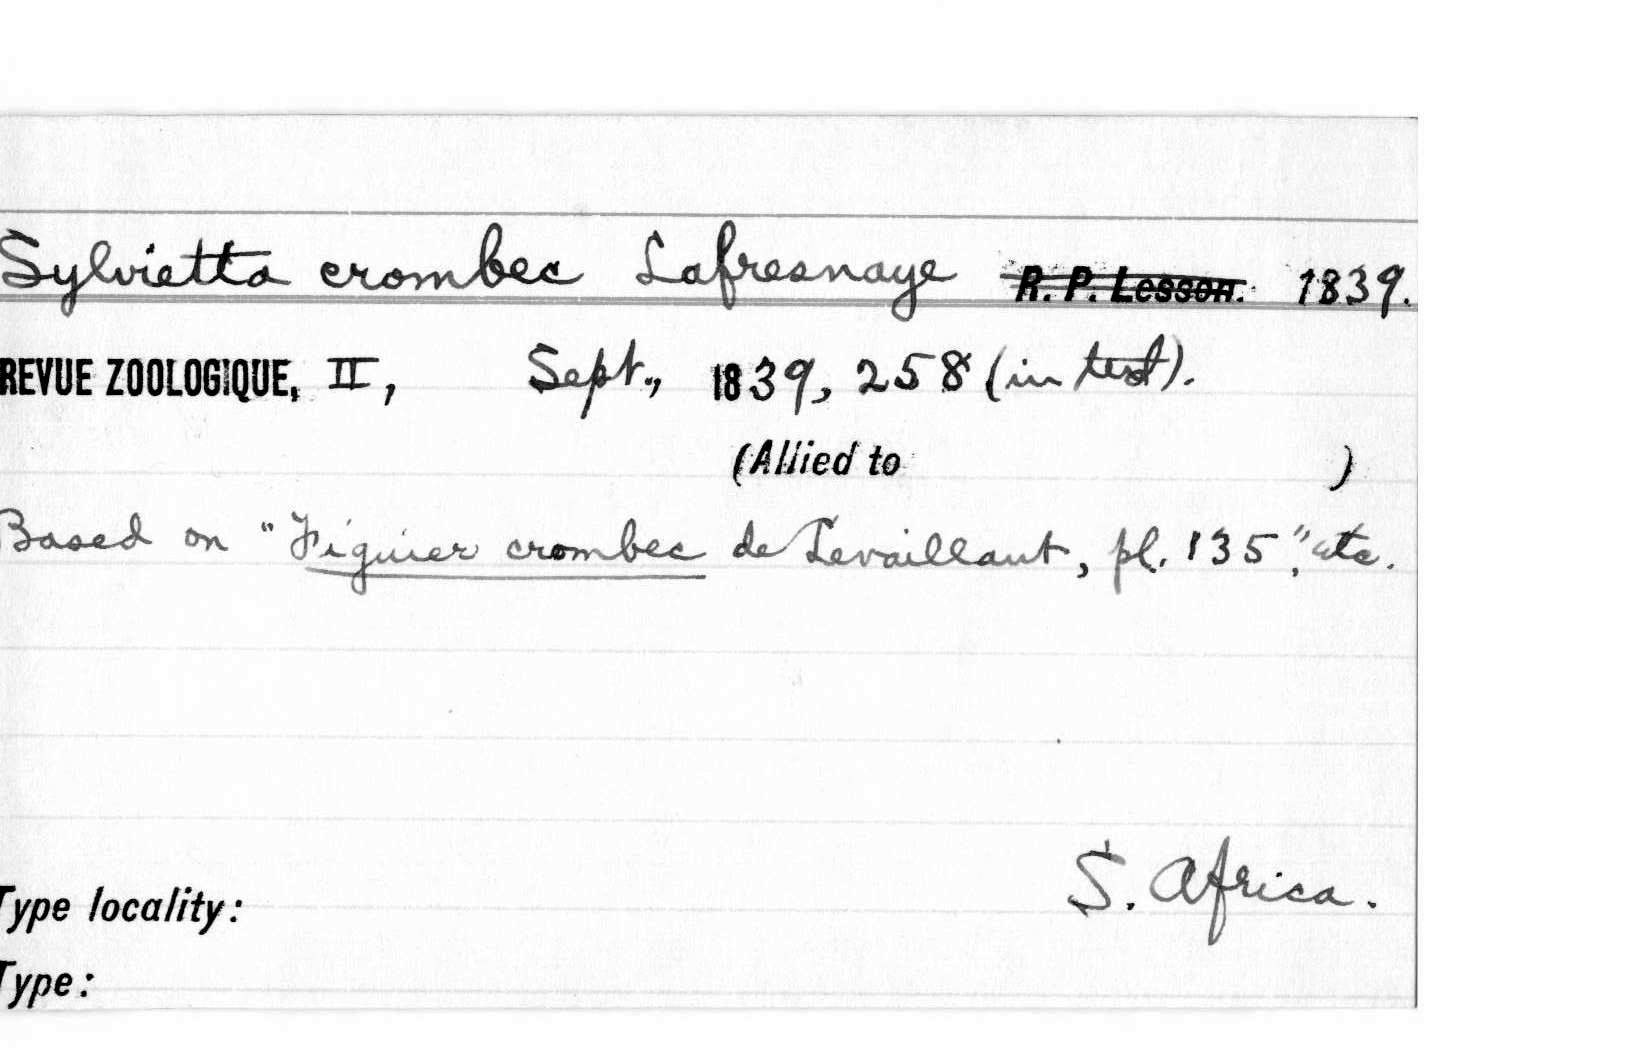 Sylvietta crombec Lafresnaye R. P. Lesson. 1839.
REVUE ZOOLOGIQUE, II, Sept., 1839, 258 (in text).
(Allied to )
Based on "Figuier crombec de Levaillant, pl. 135", etc.
S. Africa.
Type locality:
Type: